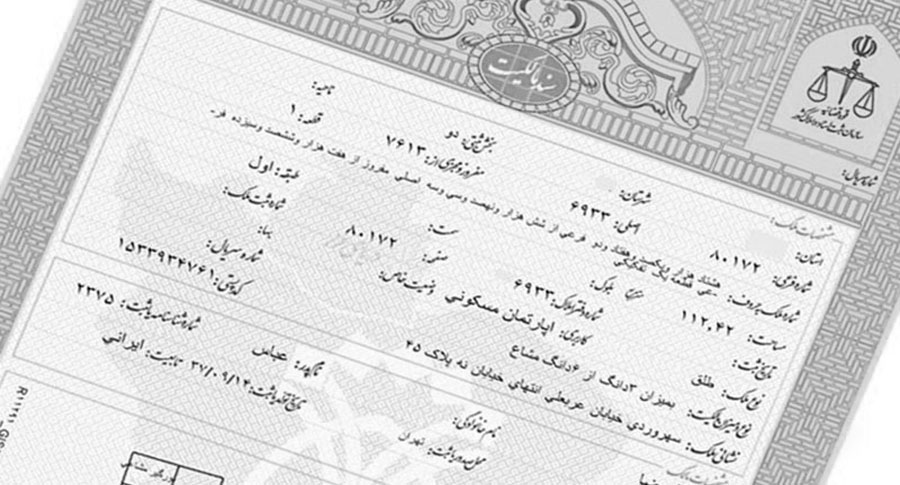 سند مالکیت
قوه قضائیه
سازمان ثبت اسناد و املاک کشور
شماره سریال:
مشخصات ملک:
استان: شهرستان: بخش ثبتی: دو ناحیه:
شماره فرعی: ۸۰۱۷۲ اصلی: ۶۹۳۳ مفروز و مجزی از: ۷۶۱۳ قطعه: ۱
شماره ملک بحروف: هشتاد هزار و یکصد و هفتاد و دو فرعی از شش هزار و نهصد و سی و سه اصلی مفروز از هفت هزار و ششصد و سیزده فر-
عی قطعه یک تفکیکی
مساحت: ۱۱۲.۴۲ بلوک: سمت: طبقه: اول
تاریخ ثبت: شماره دفتر املاک: ۶۹۳۳ صفحه: ۸۰۱۷۲ شماره ثبت ملک:
نوع ملک: طلق کاربری: اپارتمان مسکونی وضعیت خاص: بها:
نوع و میزان مالکیت: بمیزان ۳دانگ از ۶دانگ مشاع شماره سریال:
نشانی ملک: سهروردی خیابان عربعلی انتهای خیابان نه پلاک ۴۵ کدپستی: ۱۵۳۳۹۳۴۷۶۱
مشخصات مالک
نام خانوادگی: نام پدر: عباس شماره شناسنامه یا ثبت: ۲۳۷۵
محل صدور یا ثبت: تهران تاریخ تولد یا ثبت: ۳۷/۰۹/۱۴ تابعیت: ایرانی